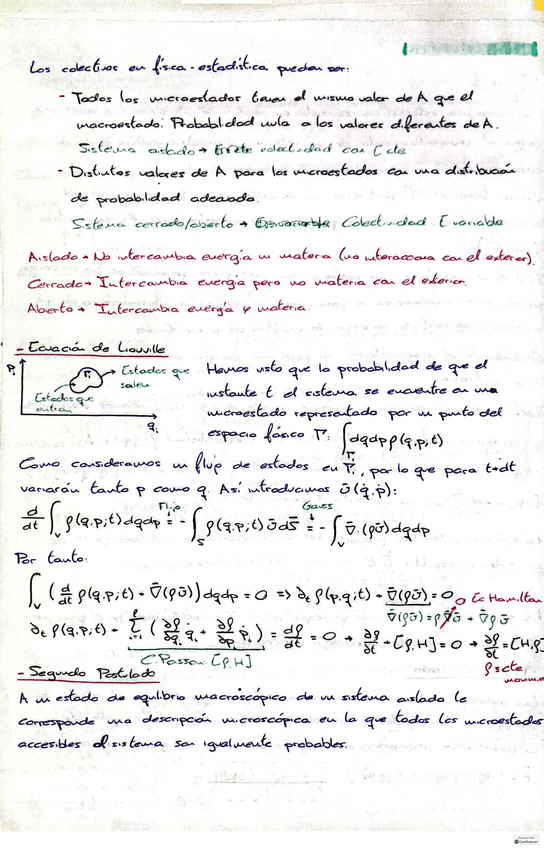 Los colectivos en física-estadística pueden ser:
- Todos los microestados tienen el mismo valor de A que el
macroestado. Probabilidad nula a los valores diferentes de A.
Sistema aislado → colectividad con E cte
- Distintos valores de A para los microestados con una distribución
de probabilidad adecuada.
Sistema cerrado/abierto → Colectividad E variable
Aislado → No intercambia energía ni materia (no interacciona con el exterior).
Cerrado → Intercambia energía pero no materia con el exterior.
Abierto → Intercambia energía y materia.
- Ecuación de Liouville
Pi
Γi
Estados que
salen
Estados que
entran
qi
Hemos visto que la probabilidad de que el
instante t el sistema se encuentre en una
microestado representado por un punto del
espacio fásico Γ: ∫_Γi dqdp ρ(q,p;t)
Como consideramos un flujo de estados en Γi, por lo que para t+dt
variarán tanto p como q. Así introducimos ū(q̇,ṗ):
Flujo Gauss
d/dt ∫_V ρ(q,p;t)dqdp = -∫_S ρ(q,p;t) ū dS̄ = -∫_V ∇̄·(ρū)dqdp
Por tanto:
∫_V (d/dt ρ(q,p;t) + ∇̄(ρū))dqdp = 0 => ∂t ρ(p,q;t) + ∇̄(ρū) = 0
0 Ec Hamilton
∇̄(ρū) = ρ∇̄ū + ∇̄ρū
∂t ρ(q,p;t) + Σ_{i=1}^{f} (∂ρ/∂qi q̇i + ∂ρ/∂pi ṗi) = dρ/dt = 0 → ∂ρ/∂t + [ρ,H] = 0 → ∂ρ/∂t = [H,ρ]
C.Poisson [ρ,H]
ρ = cte
- Segundo Postulado
A un estado de equilibrio macroscópico de un sistema aislado le
corresponde una descripción microscópica en la que todos los microestados
accesibles al sistema son igualmente probables.
CamScanner